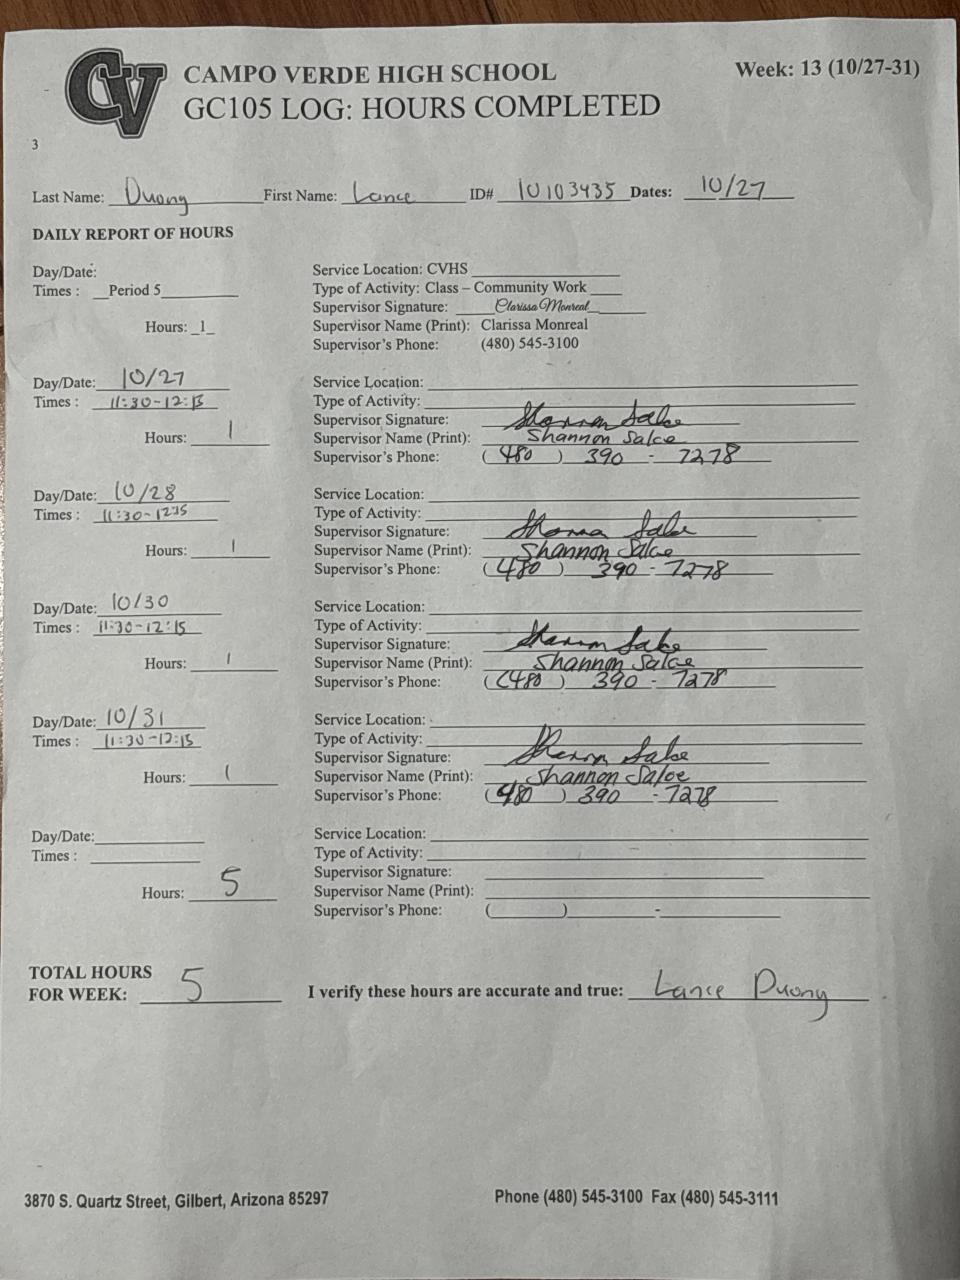 CV
CAMPO VERDE HIGH SCHOOL
Week: 13 (10/27-31)
GC105 LOG: HOURS COMPLETED
3
Last Name: Duong First Name: Lance ID# 10103435 Dates: 10/27
DAILY REPORT OF HOURS
Day/Date:
Times : Period 5
Hours: 1
Service Location: CVHS
Type of Activity: Class – Community Work
Supervisor Signature: Clarissa Monreal
Supervisor Name (Print): Clarissa Monreal
Supervisor's Phone: (480) 545-3100
Day/Date: 10/27
Times : 11:30-12:15
Hours: 1
Service Location:
Type of Activity:
Supervisor Signature: Shannon Salce
Supervisor Name (Print): Shannon Salce
Supervisor's Phone: (480) 390 - 7278
Day/Date: 10/28
Times : 11:30-12:15
Hours: 1
Service Location:
Type of Activity:
Supervisor Signature: Shannon Salce
Supervisor Name (Print): Shannon Salce
Supervisor's Phone: (480) 390 - 7278
Day/Date: 10/30
Times : 11:30-12:15
Hours: 1
Service Location:
Type of Activity:
Supervisor Signature: Shannon Salce
Supervisor Name (Print): Shannon Salce
Supervisor's Phone: (480) 390 - 7278
Day/Date: 10/31
Times : 11:30-12:15
Hours: 1
Service Location:
Type of Activity:
Supervisor Signature: Shannon Salce
Supervisor Name (Print): Shannon Salce
Supervisor's Phone: (480) 390 - 7278
Day/Date:
Times :
Hours: 5
Service Location:
Type of Activity:
Supervisor Signature:
Supervisor Name (Print):
Supervisor's Phone: ( ) -
TOTAL HOURS
FOR WEEK: 5
I verify these hours are accurate and true: Lance Duong
3870 S. Quartz Street, Gilbert, Arizona 85297
Phone (480) 545-3100 Fax (480) 545-3111